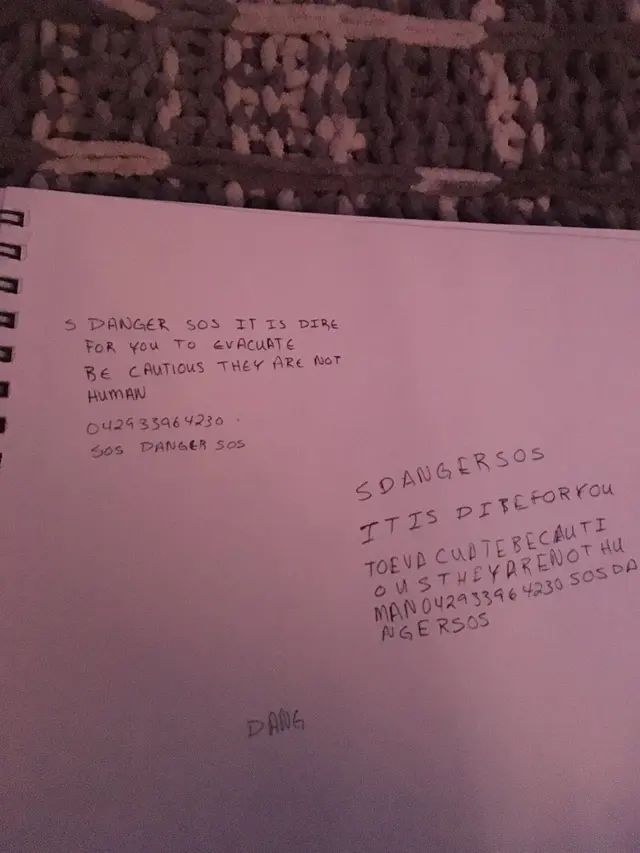 S DANGER SOS IT IS DIRE
FOR YOU TO EVACUATE
BE CAUTIOUS THEY ARE NOT
HUMAN
042933964230.
SOS DANGER SOS
SDANGERSOS
ITIS DIREFORYOU
TOEVACUATEBECAUTI
OUSTHEYARENOTHU
MAN042933964230SOSDA
NGERSOS
DANG